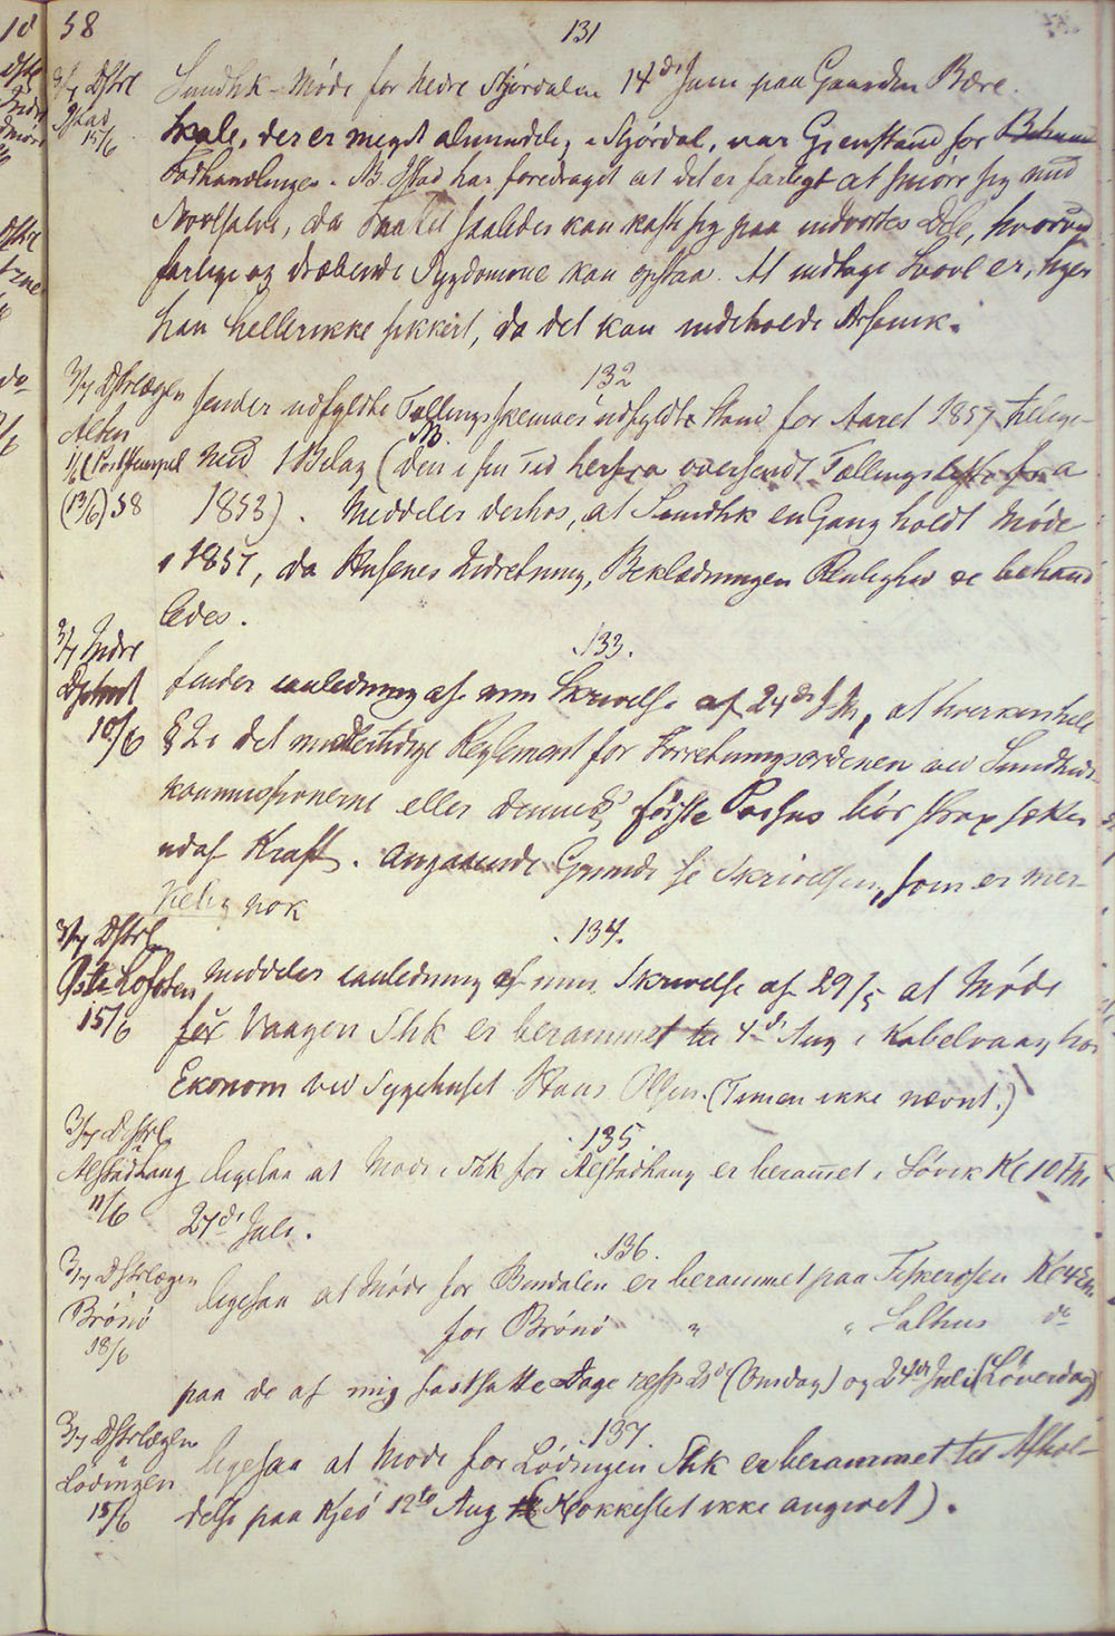 58
131
3/7 Dstrl
Sundhk-Møde for Nedre Stjørdalen 14de Juni paa Gaarden Bære.
15/6
Skab, der er meget almindelig i Stjørdal, var Gjenstand for
Forhandlinger. NB. har foredraget at det er farligt at smøre sig med
Svovlsalve, da saaledes kan kaste sig paa indvortes Dele, hvorved
farlige og dræbende Sygdomme kan opstaa. At indtage Svovl er, siger
han heller ikke sikkert, da det kan indeholde Arsenik.
132
3/7 Dstrlægen
Alten
sender udfyldte Tællingsskemaer udfyldte for Aaret 1857 tillige-
NB.
Poststempel
med 1 Bilag (den i sin Tid herfra oversendt Tællingsliste fra
(13/6) 58
1853). Meddeler derhos, at Sundhk en Gang holdt Møde
i 1857, da Husenes Indretning, Beklædningen Renlighed etc behand
ledes.
133.
3/7 Indre
10/6
finder i anledning af min Skrivelse af 24de f.M., at hverken hele
§ 2 i det midlertidige Reglement for Forretningsordenen ved Sundheds-
kommissionerne eller dennes første Passus bør strax sættes
ud af Kraft. Angaaende Grunde se Skrivelsen, som er mer-
kelig nok
134.
3/7 Dstrl
Øst-Lofoten
15/6
meddeler i anledning af min Skrivelse af 29/5 at Møde
for Vaagen Shk er berammet til 4de Aug i Kabelvaag hos
Ekonom ved Sygehuset Hans Olsen. (Timen ikke nævnt.)
135.
3/7 Distrl.
Alstadhaug
11/6
ligesaa at Møde i Shk for Alstadhaug er beramet i Søvik Kl 10 Fm
27de Juli.
136.
3/7 Dstrlægen
Brønø
18/6
ligesaa at Møde for Bindalen er berammet paa Terskerosen Kl 4 Em
for Brønø " " Salhus do
paa de af mig fastsatte Dage resp 21de (Onsdag) og 24de Juli (Løverdag)
137.
3/7 Dstrlægen
Lødingen
15/6
ligesaa at Møde for Lødingen Shk er berammet til Afhol-
delse paa Kjeø 12te Aug (Klokkeslet ikke angivet).